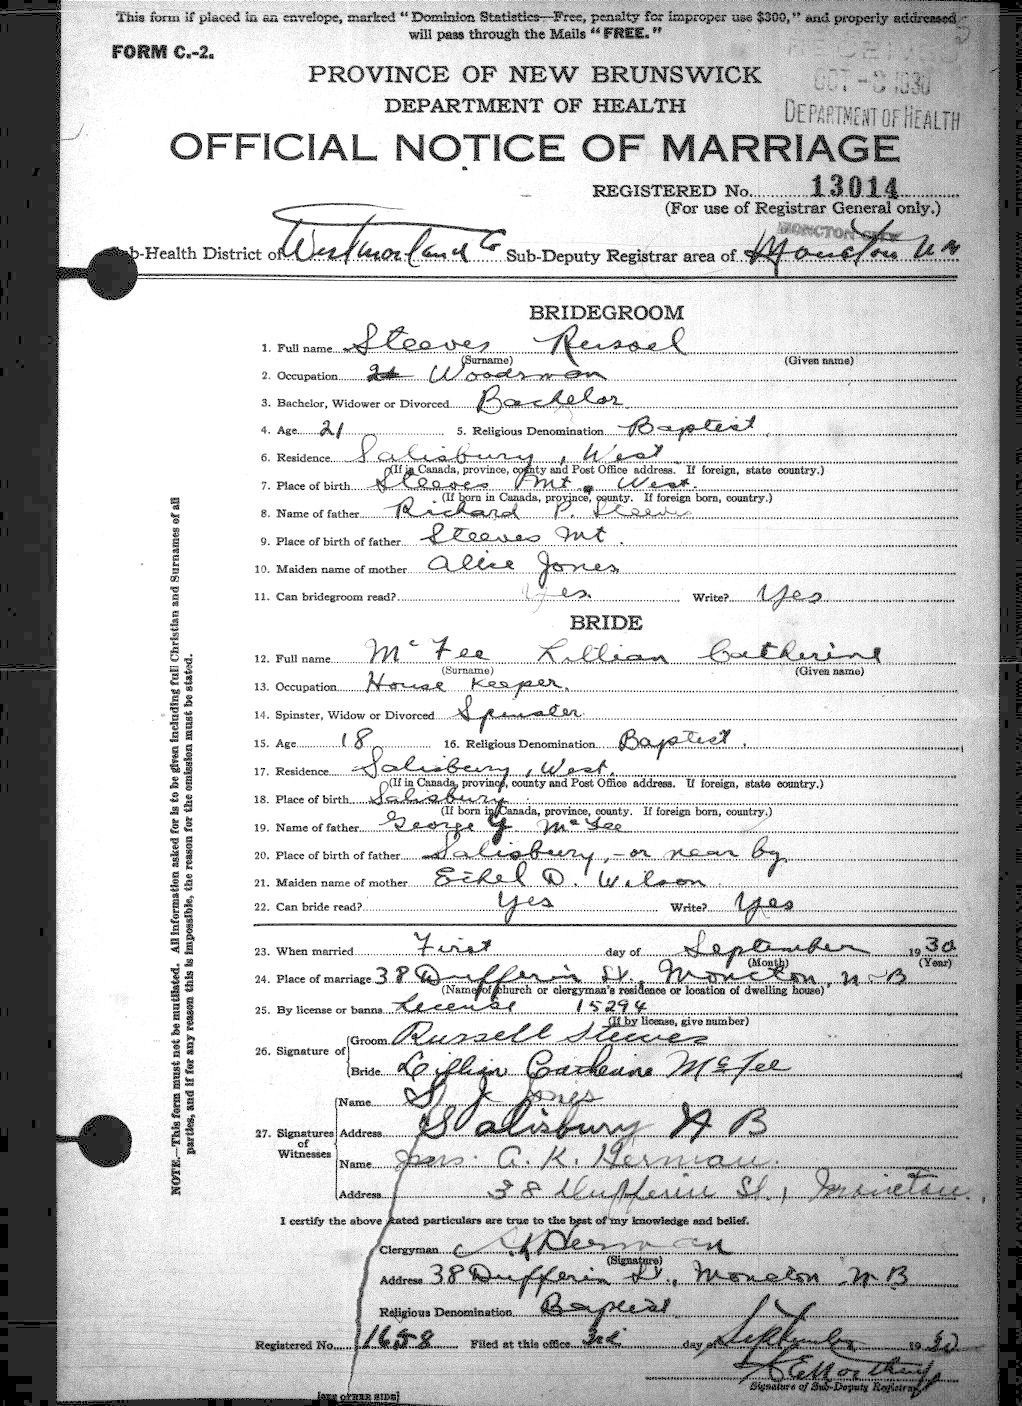 This form if placed in an envelope, marked "Dominion Statistics—Free, penalty for improper use $300," and properly addressed
will pass through the Mails "FREE."
FORM C.-2.
PROVINCE OF NEW BRUNSWICK
OCT -3 1930
DEPARTMENT OF HEALTH
DEPARTMENT OF HEALTH
OFFICIAL NOTICE OF MARRIAGE
REGISTERED No. 13014
(For use of Registrar General only.)
MONCTON CITY
Sub-Health District of Westmorland Co Sub-Deputy Registrar area of Moncton N B
BRIDEGROOM
1. Full name Steeves Russel
(Surname) (Given name)
2. Occupation Woodsman
3. Bachelor, Widower or Divorced Bachelor
4. Age 21 5. Religious Denomination Baptist.
6. Residence Salisbury, West
(If in Canada, province, county and Post Office address. If foreign, state country.)
7. Place of birth Steeves Mt, West.
(If born in Canada, province, county. If foreign born, country.)
8. Name of father Richard P. Steeves
9. Place of birth of father Steeves Mt.
10. Maiden name of mother Alice Jones
11. Can bridegroom read? Yes Write? Yes
BRIDE
12. Full name McFee Lillian Catherine
(Surname) (Given name)
13. Occupation House Keeper.
14. Spinster, Widow or Divorced Spinster
15. Age 18 16. Religious Denomination Baptist.
17. Residence Salisbury, West.
(If in Canada, province, county and Post Office address. If foreign, state country.)
18. Place of birth Salisbury
(If born in Canada, province, county. If foreign born, country.)
19. Name of father George G McFee
20. Place of birth of father Salisbury, - or near by
21. Maiden name of mother Ethel D. Wilson
22. Can bride read? Yes Write? Yes
23. When married First day of September 1930
(Month) (Year)
24. Place of marriage 38 Dufferin St., Moncton, N-B
(Name of church or clergyman's residence or location of dwelling house)
25. By license or banns License 15294
(If by license, give number)
26. Signature of Groom Russell Steeves
Bride Lillian Catherine McFee
27. Signatures of Witnesses
Name S J Jones
Address Salisbury N B
Name Mrs. A. K. Herman.
Address 38 Dufferin St., Moncton.
I certify the above stated particulars are true to the best of my knowledge and belief.
Clergyman A. K. Herman
(Signature)
Address 38 Dufferin St., Moncton N-B
Religious Denomination Baptist
Registered No. 1658 Filed at this office 3rd day of September 1930
Signature of Sub-Deputy Registrar
[SEE OTHER SIDE]
NOTE.—This form must not be mutilated. All information asked for is to be given including full Christian and Surnames of all
parties, and if for any reason this is impossible, the reason for the omission must be stated.